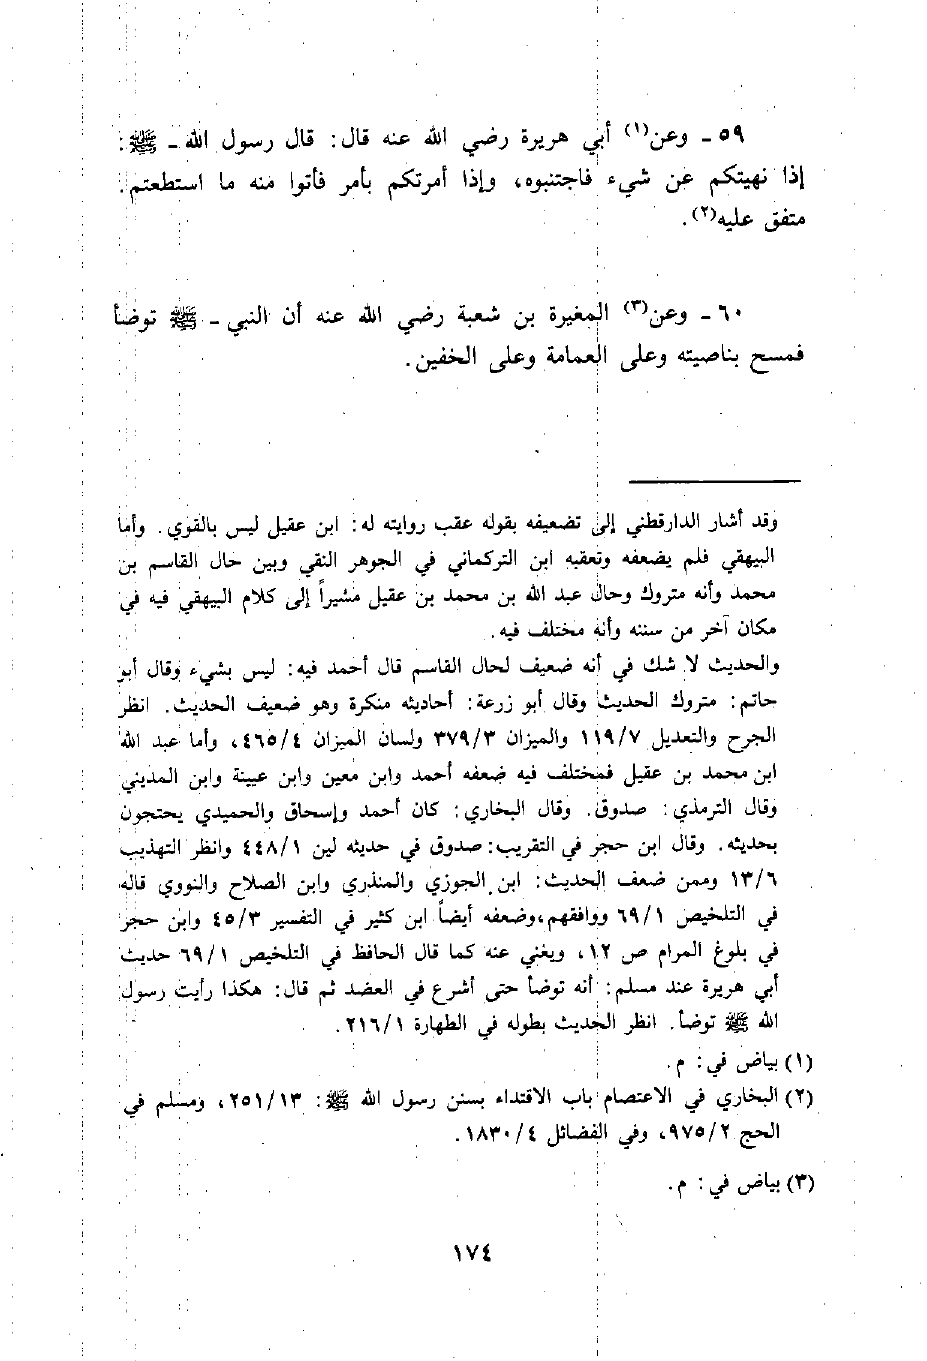 ٥٩ ـ وعن(١) أبي هريرة رضي الله عنه قال: قال رسول الله ـ ﷺ:
إذا نهيتكم عن شيء فاجتنبوه، وإذا أمرتكم بأمر فأتوا منه ما استطعتم.
متفق عليه(٢).
٦٠ ـ وعن(٣) المغيرة بن شعبة رضي الله عنه أن النبي ـ ﷺ توضأ
فمسح بناصيته وعلى العمامة وعلى الخفين.
وقد أشار الدارقطني إلى تضعيفه بقوله عقب روايته له: ابن عقيل ليس بالقوي. وأما
البيهقي فلم يضعفه وتعقبه ابن التركماني في الجوهر النقي وبين حال القاسم بن
محمد وأنه متروك وحال عبد الله بن محمد بن عقيل مشيراً إلى كلام البيهقي فيه في
مكان آخر من سننه وأنه مختلف فيه.
والحديث لا شك في أنه ضعيف لحال القاسم قال أحمد فيه: ليس بشيء وقال أبو
حاتم: متروك الحديث وقال أبو زرعة: أحاديثه منكرة وهو ضعيف الحديث. انظر
الجرح والتعديل ١١٩/٧ والميزان ٣٧٩/٣ ولسان الميزان ٤٦٥/٤، وأما عبد الله
ابن محمد بن عقيل فمختلف فيه ضعفه أحمد وابن معين وابن عيينة وابن المديني
وقال الترمذي: صدوق. وقال البخاري: كان أحمد وإسحاق والحميدي يحتجون
بحديثه. وقال ابن حجر في التقريب: صدوق في حديثه لين ٤٤٨/١ وانظر التهذيب
١٣/٦ وممن ضعف الحديث: ابن الجوزي والمنذري وابن الصلاح والنووي قاله
في التلخيص ٦٩/١ ووافقهم،وضعفه أيضاً ابن كثير في التفسير ٤٥/٣ وابن حجر
في بلوغ المرام ص ١٢، ويغني عنه كما قال الحافظ في التلخيص ٦٩/١ حديث
أبي هريرة عند مسلم: أنه توضأ حتى أشرع في العضد ثم قال: هكذا رأيت رسول
الله ﷺ توضأ. انظر الحديث بطوله في الطهارة ٢١٦/١.
(١) بياض في: م.
(٢) البخاري في الاعتصام باب الاقتداء بسنن رسول الله ﷺ: ٢٥١/١٣، ومسلم في
الحج ٩٧٥/٢، وفي الفضائل ١٨٣٠/٤.
(٣) بياض في: م.
١٧٤